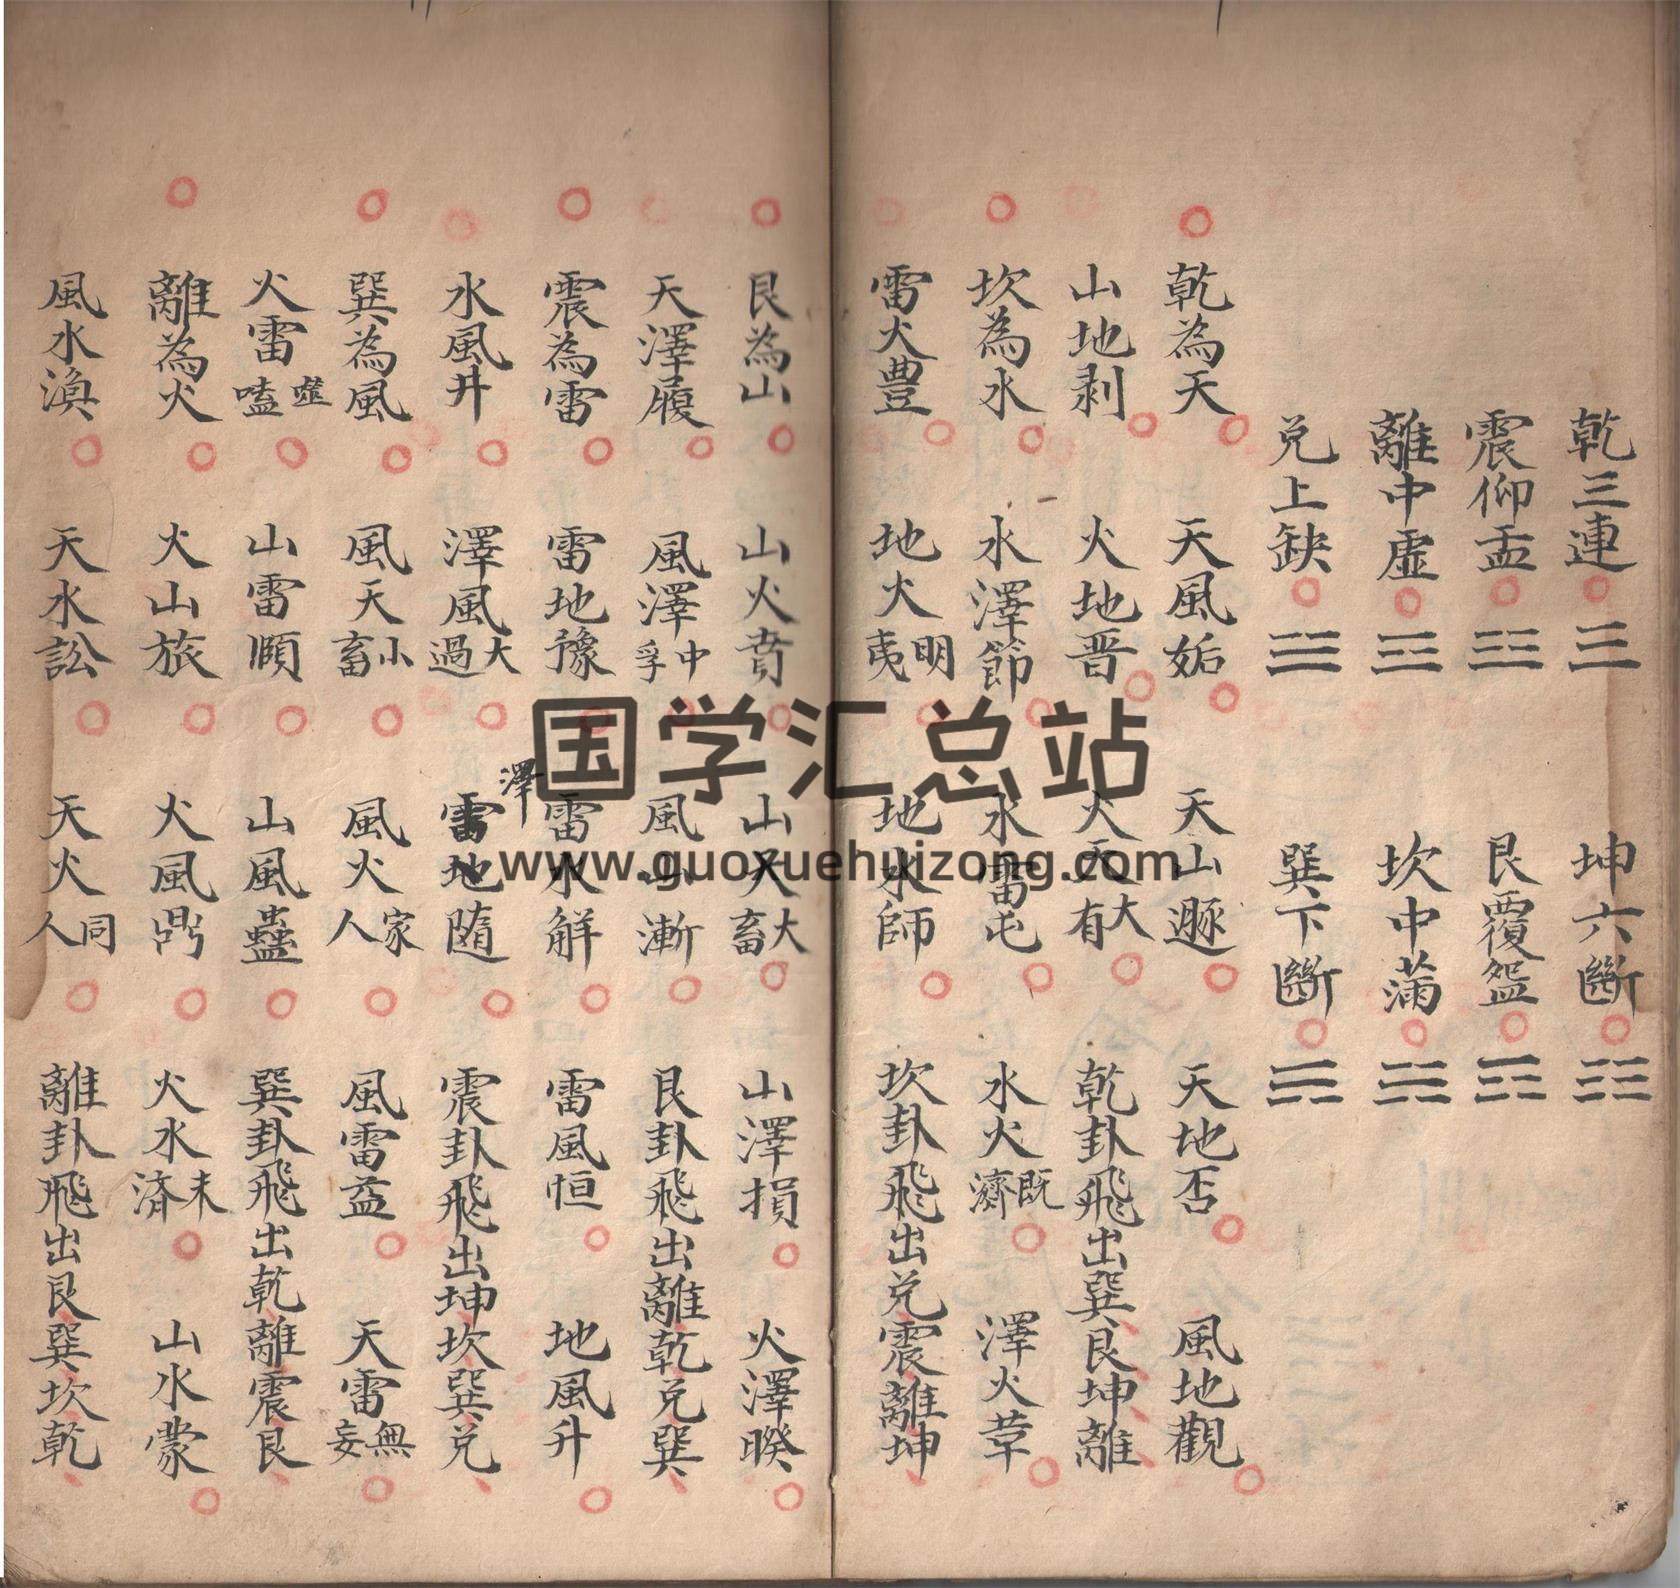 乾三連 坤六斷
震仰盂 艮覆盌
離中虛 坎中滿
兌上缺 巽下斷
乾為天 天風姤 天山遯 天地否 風地觀
山地剥 火地晋 火天大有 乾卦飛出巽艮坤離
坎為水 水澤節 水雷屯 水火既濟 澤火革
雷火豊 地火明夷 地水師 坎卦飛出兌震離坤
艮為山 山火賁 山天大畜 山澤損 火澤暌
天澤履 風澤中孚 風山漸 艮卦飛出離乾兌巽
震為雷 雷地豫 雷水解 雷風恒 地風升
水風井 澤風大過 澤地隨 震卦飛出坤坎巽兌
巽為風 風天小畜 風火家人 風雷益 天雷無妄
火雷噬嗑 山雷頤 山風蠱 巽卦飛出乾離震艮
離為火 火山旅 火風鼎 火水未済 山水蒙
風水渙 天水訟 天火同人 離卦飛出艮巽坎乾
国学汇总站
www.guoxuehuizong.com